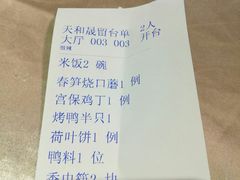 天和晟留台单 2人
大厅 003 003 开台
米饭2 碗
春笋烧口蘑1 例
宫保鸡丁1 例
烤鸭半只1
荷叶饼1 例
鸭料1 位